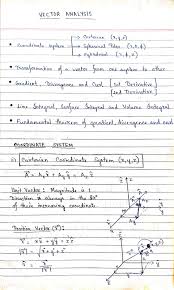 VECTOR ANALYSIS
→ Cartesian (x,y,z)
• Coordinate System → Spherical Polar (r,θ,φ)
→ Cylindrical
• Transformation of a vector from one system to other
• Gradient, Divergence and Curl [1st Derivative
2nd Derivative]
• Line Integral, Surface Integral and Volume Integral
• Fundamental theorem of gradient, divergence and curl
COORDINATE SYSTEM
Cartesian Coordinate System (x,y,z)
Unit Vector: Magnitude is 1
Direction is always in the
of their increasing coordinate
Position Vector